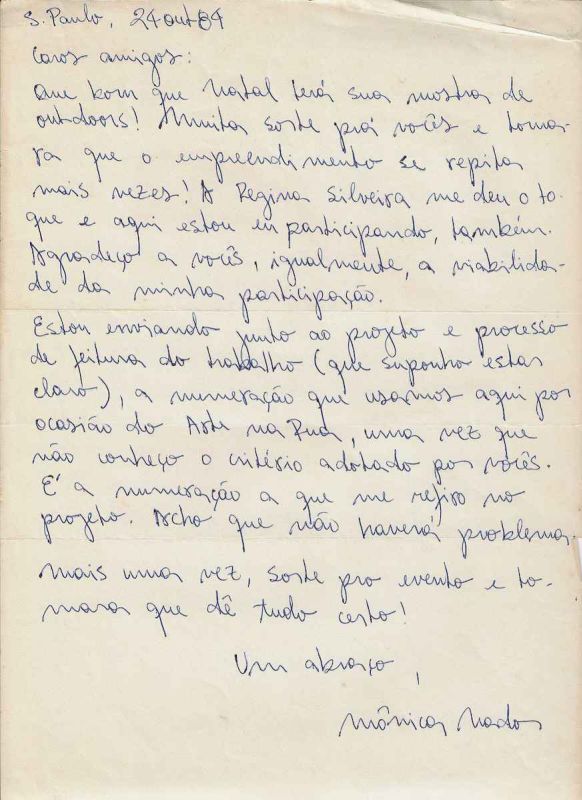 S. Paulo, 24out84
Caros amigos:
Que bom que Natal terá sua mostra de
outdoors! Muita sorte prá vocês e toma-
ra que o empreendimento se repita
mais vezes! A Regina Silveira me deu o to-
que e aqui estou eu participando, também.
Agradeço a vocês, igualmente, a viabilida-
de da minha participação.
Estou enviando junto ao projeto e processo
de feitura do trabalho (que suponho estar
claro), a numeração que usamos aqui por
ocasião do Arte na Rua, uma vez que
não conheço o critério adotado por vocês.
É a numeração a que me refiro no
projeto. Acho que não haverá problema.
Mais uma vez, sorte pro evento e to-
mara que dê tudo certo!
Um abraço,
Mônica Nador